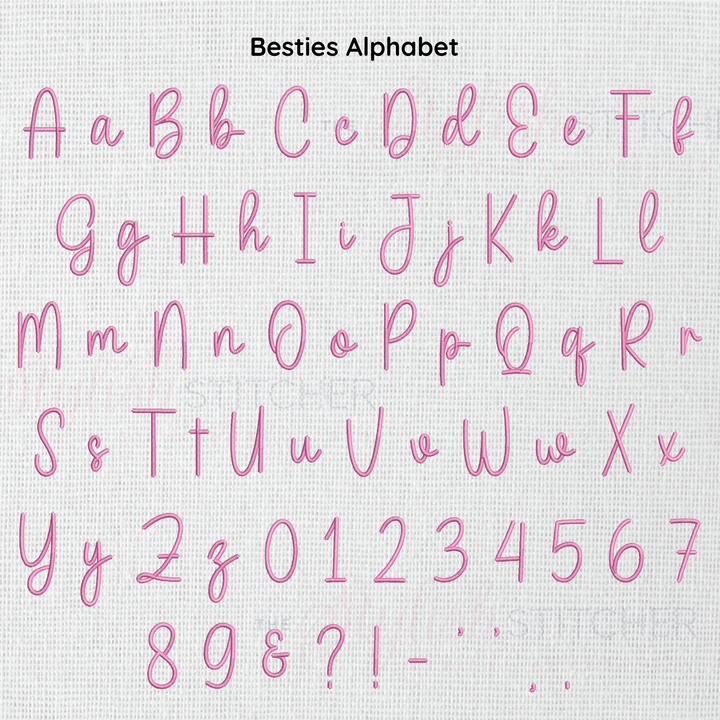 Besties Alphabet
A a B b C c D d E e F f
G g H h I i J j K k L l
M m N n O o P p Q q R r
S s T t U u V v W w X x
Y y Z z 0 1 2 3 4 5 6 7
STITCHER
8 9 & ? ! - ' ' , .
THE STITCHER